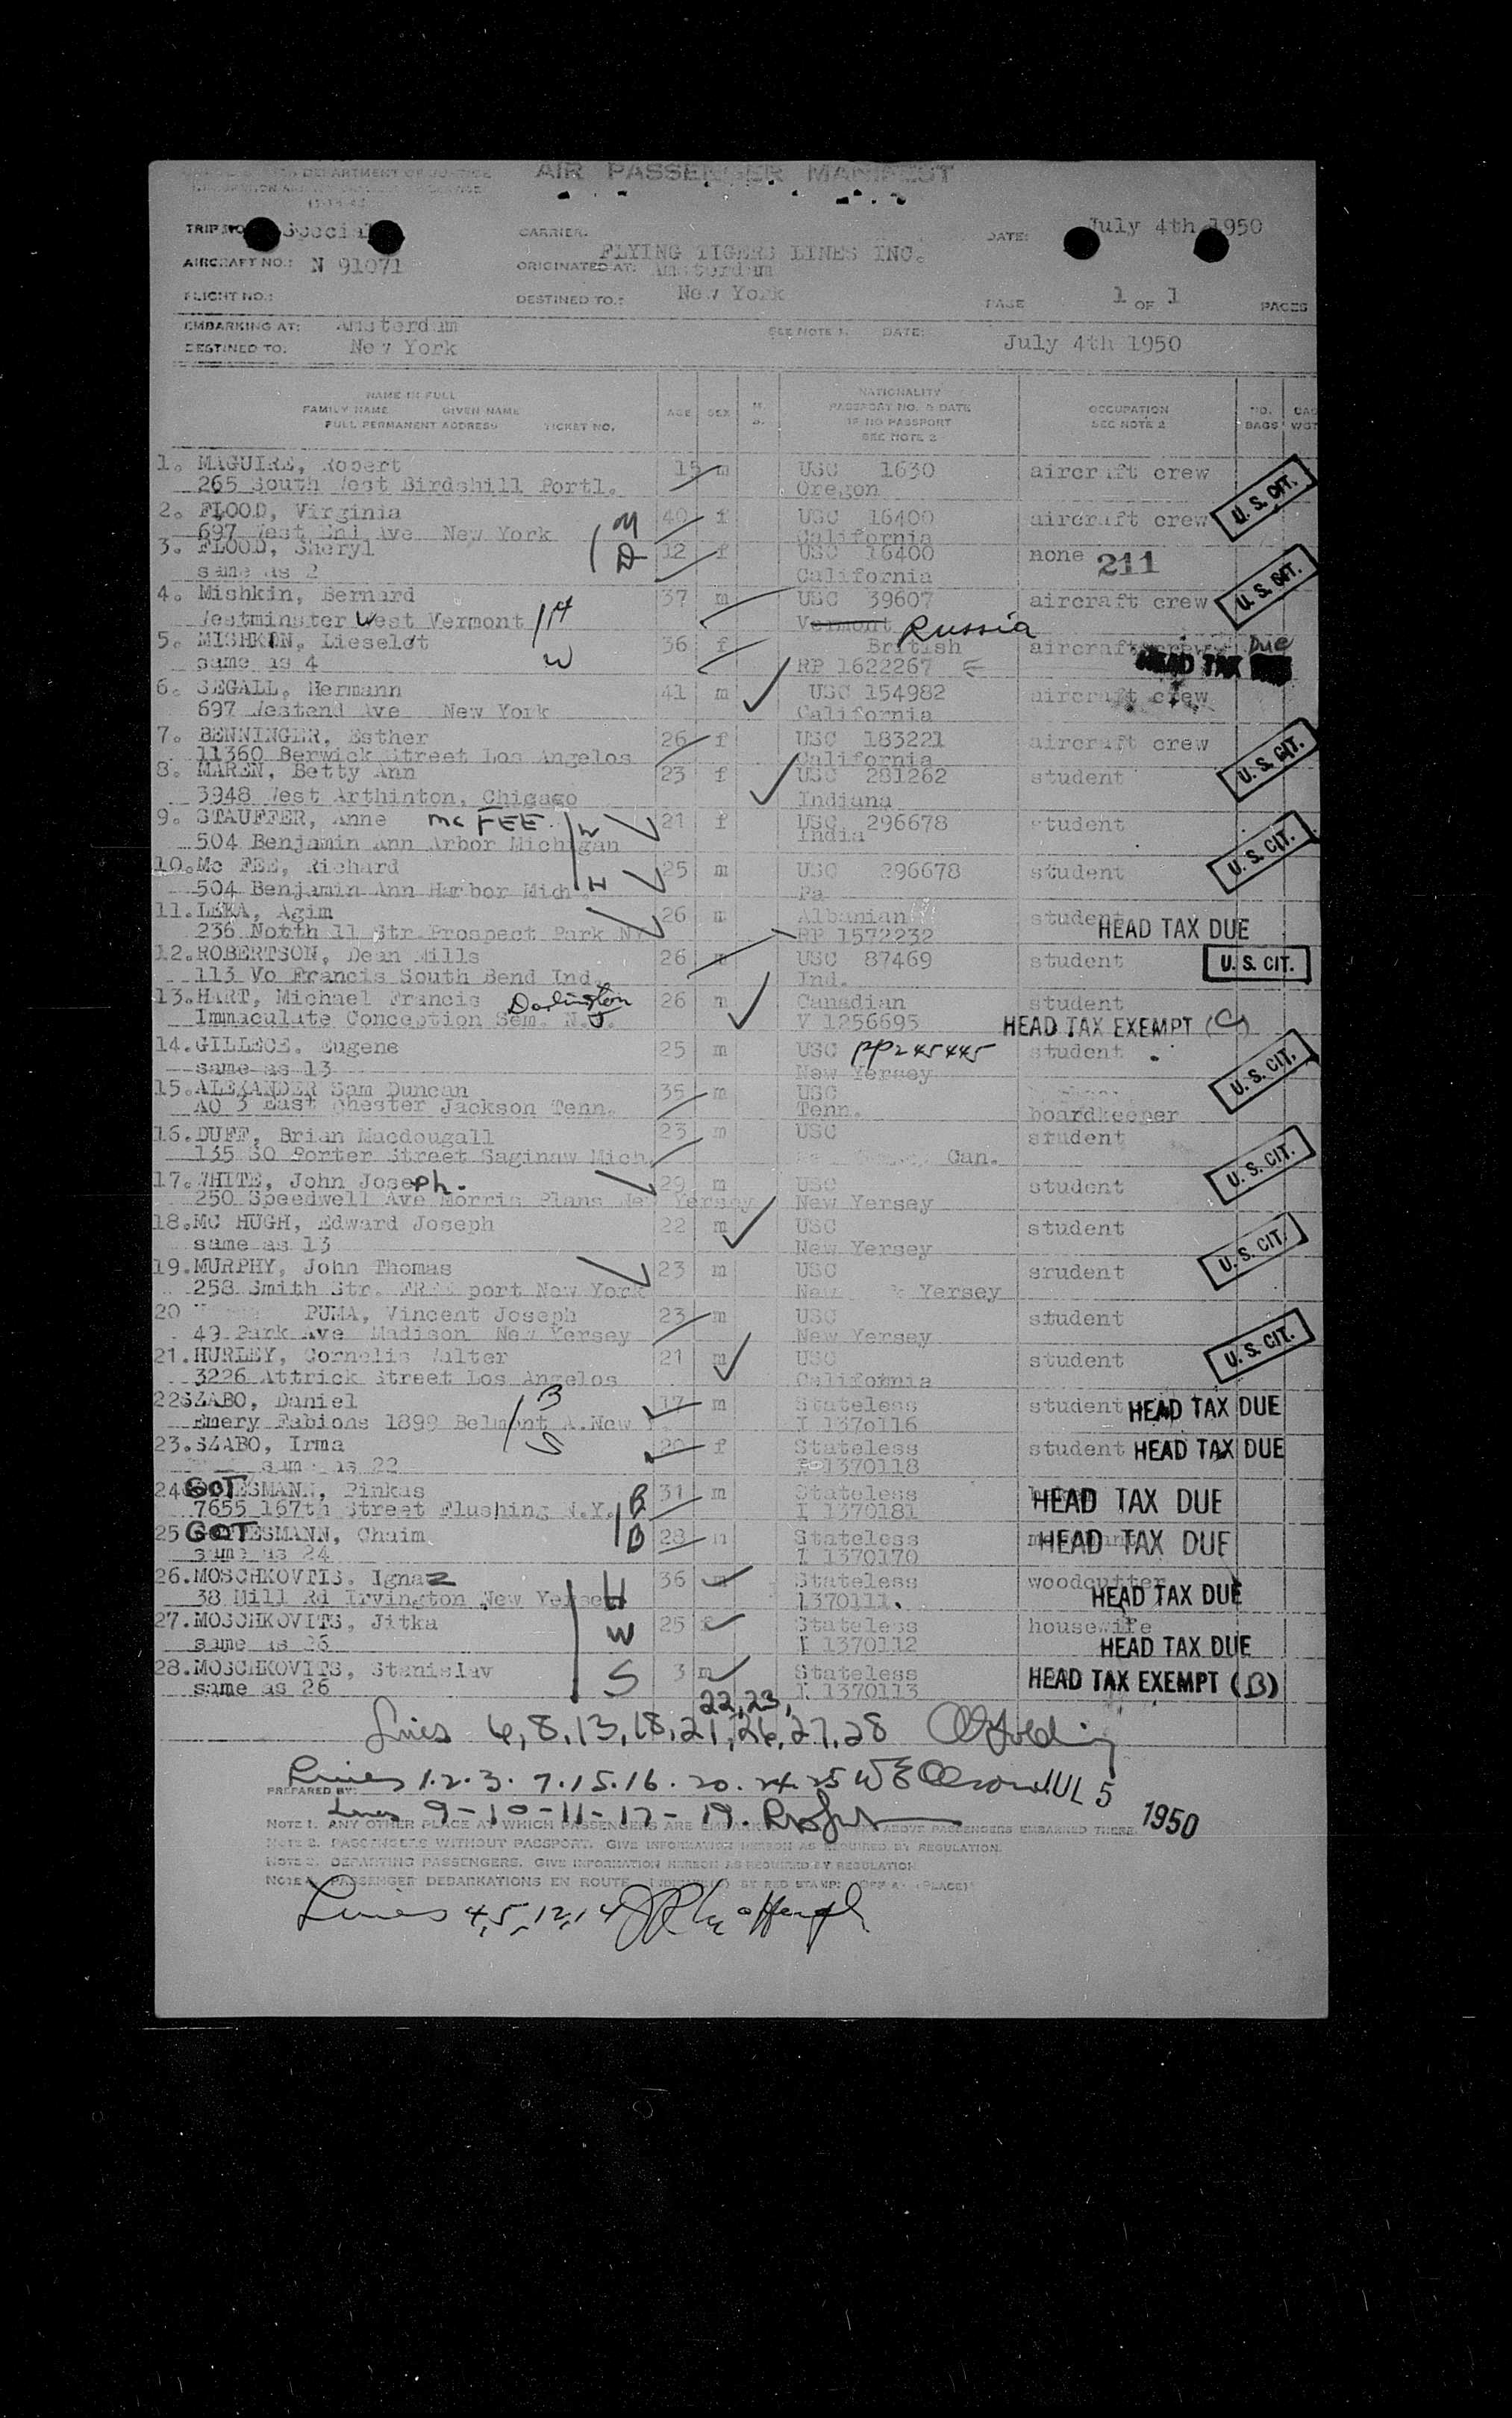 AIR PASSENGER MANIFEST
DEPARTMENT OF JUSTICE
TRIP NO. Special CARRIER. DATE: July 4th 1950
FLYING TIGERS LINES INC.
AIRCRAFT NO.: N 91071 ORIGINATED AT: Amsterdam
FLIGHT NO.: DESTINED TO.: New York PAGE 1 OF 1 PAGES
EMBARKING AT: Amsterdam SEE NOTE 1. DATE:
DESTINED TO: New York July 4th 1950
NAME IN FULL NATIONALITY
FAMILY NAME GIVEN NAME AGE SEX PASSPORT NO. & DATE OCCUPATION NO. CAG
FULL PERMANENT ADDRESS TICKET NO. IF NO PASSPORT SEE NOTE 2 BAGS WGT
SEE NOTE 2
1. MAGUIRE, Robert 15 m USC 1630 aircraft crew
265 South West Birdshill Portl. Oregon U. S. CIT.
2. FLOOD, Virginia M 40 f USC 16400 aircraft crew
697 West End Ave New York California
3. FLOOD, Sheryl D 12 f USC 16400 none 211
same as 2 California U. S. CIT.
4. Mishkin, Bernard 37 m USC 39607 aircraft crew
Westminster West Vermont H Vermont Russia
5. MISHKIN, Lieselot 36 f British aircraft crew Due
same as 4 W RP 1622267 HEAD TAX
6. SEGALL, Hermann 41 m USC 154982 aircraft crew
697 Westend Ave New York California
7. BENNINGER, Esther 26 f USC 183221 aircraft crew
11360 Berwick Street Los Angelos California U. S. CIT.
8. MAREN, Betty Ann 23 f USC 281262 student
3948 West Arthinton, Chigago Indiana
9. STAUFFER, Anne Mc FEE. W 21 f USC 296678 student
504 Benjamin Ann Arbor Michigan India U. S. CIT.
10. Mc FEE, Richard 25 m USC 296678 student
504 Benjamin Ann Harbor Mich H Pa
11. LEKA, Agim 26 m Albanian student
236 North 11 Str.Prospect Park NY RP 1572232 HEAD TAX DUE
12. ROBERTSON, Dean Mills 26 m USC 87469 student U. S. CIT.
113 Vo Francis South Bend Ind. Ind.
13. HART, Michael Francis Darlington 26 m Canadian student
Immaculate Conception Sem. N.J. V 1256695 HEAD TAX EXEMPT (C)
14. GILLECE, Eugene 25 m USC PP245445 student
same as 13 New Yersey U. S. CIT.
15. ALEXANDER Sam Duncan 35 m USC
AO 3 East Chester Jackson Tenn. Tenn. boardkeeper
16. DUFF, Brian Macdougall 23 m USC student
135 SO Porter Street Saginaw Mich. Can.
17. WHITE, John Joseph. 29 m USC student U. S. CIT.
250 Speedwell Ave Morris Plans New Yersey New Yersey
18. MC HUGH, Edward Joseph 22 m USC student
same as 13 New Yersey
19. MURPHY, John Thomas 23 m USC srudent U. S. CIT.
258 Smith Str. FREE port New York New Yersey
20 PUMA, Vincent Joseph 23 m USC student
49 Park Ave Madison New Yersey New Yersey
21. HURLEY, Cornelis Walter 21 m USC student U. S. CIT.
3226 Attrick Street Los Angelos California
22 SZABO, Daniel B 17 m Stateless student HEAD TAX DUE
Emery Fabions 1899 Belmont A.New I 1370116
23. SZABO, Irma S 20 f Stateless student HEAD TAX DUE
same as 22 I 1370118
24 GOTTESMANN, Pinkus B 31 m Stateless HEAD TAX DUE
7655 167th Street Flushing N.Y. I 1370181
25 GOTTESMANN, Chaim B 28 m Stateless HEAD TAX DUE
same as 24 I 1370170
26. MOSCHKOVITS, Ignaz 36 m Stateless woodcutter
38 Mill Rd Irvington New Yersey H 1370111. HEAD TAX DUE
27. MOSCHKOVITS, Jitka 25 f Stateless housewife
same as 26 W I 1370112 HEAD TAX DUE
28. MOSCHKOVITS, Stanislav 3 m Stateless HEAD TAX EXEMPT (B)
same as 26 S I 1370113
22, 23,
Lines 6, 8, 13, 18, 21, 26, 27, 28
Lines 1. 2. 3. 7. 15. 16. 20. 24. 25 JUL 5 1950
PREPARED BY:
Lines 9-10-11-17-19.
NOTE 1. ANY OTHER PLACE AT WHICH PASSENGERS ARE ABOVE PASSENGERS EMBARKED THERE.
NOTE 2. PASSENGERS WITHOUT PASSPORT. GIVE INFORMATION HEREON AS REQUIRED BY REGULATION.
NOTE 3. DEPARTING PASSENGERS. GIVE INFORMATION HEREON AS REQUIRED BY REGULATION
NOTE 4. PASSENGER DEBARKATIONS EN ROUTE BY RED STAMP: (PLACE)
Lines 4, 5, 12, 14